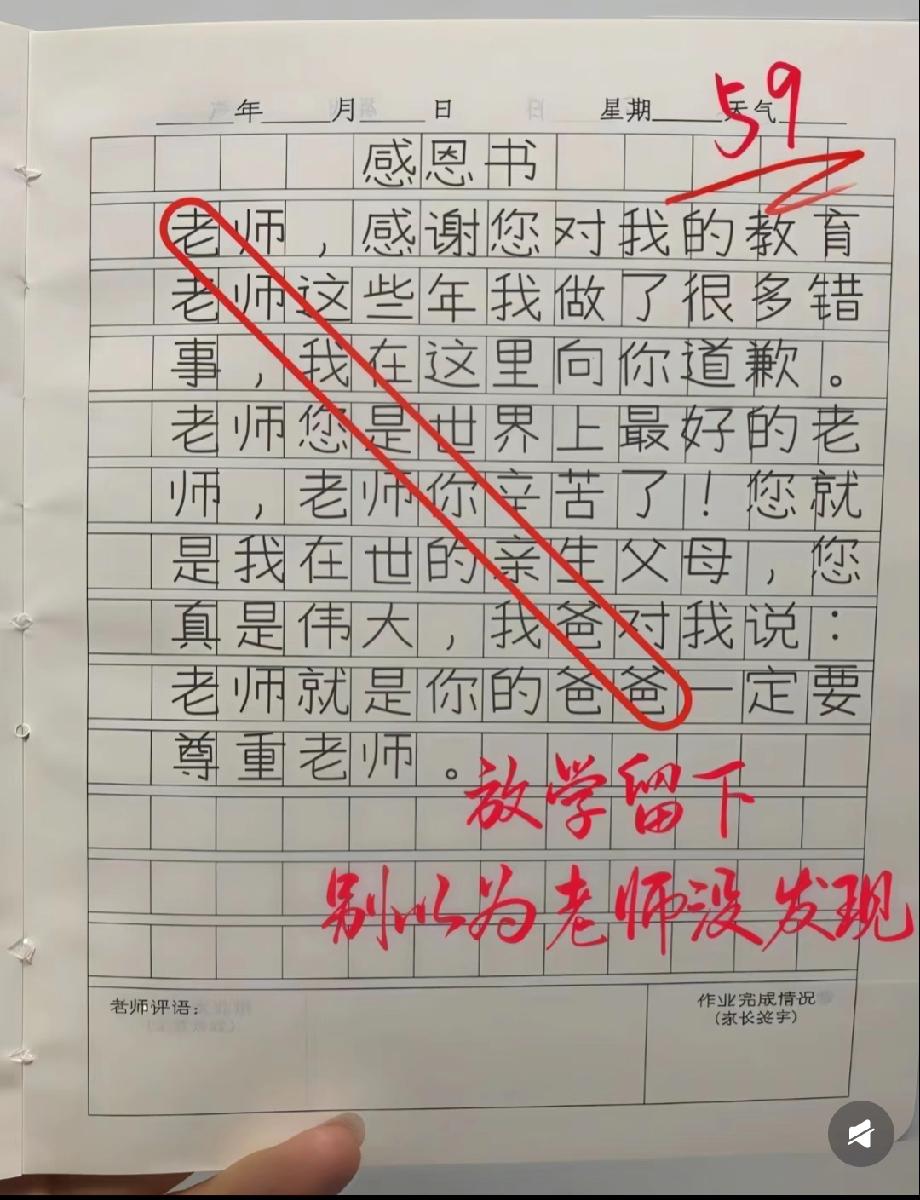 年 月 日 星期 天气
59
感恩书
老师，感谢您对我的教育
老师这些年我做了很多错
事，我在这里向你道歉。
老师您是世界上最好的老
师，老师你辛苦了！您就
是我在世的亲生父母，您
真是伟大，我爸对我说：
老师就是你的爸爸一定要
尊重老师。
放学留下
别以为老师没发现
老师评语：
作业完成情况
(家长签字)